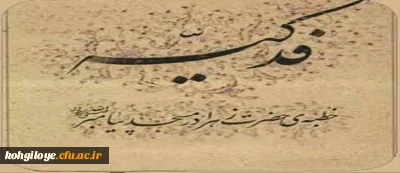 فدکیه
خطبه‌ی حضرت زهرا در مسجد پیامبر
kohgiloye.cfu.ac.ir